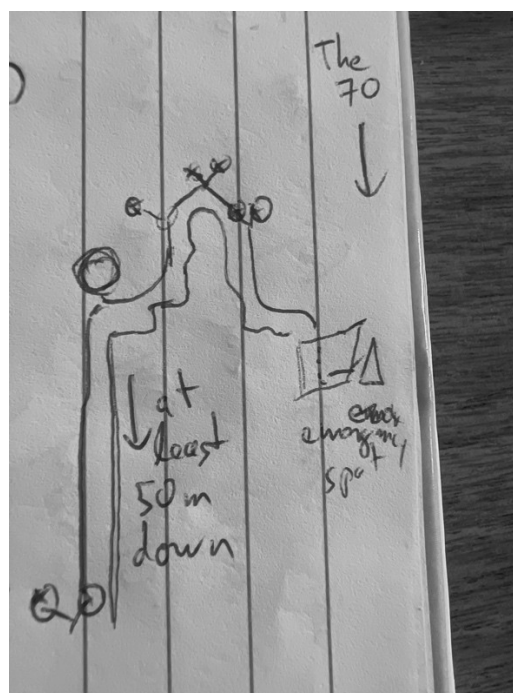 The
70
at
least
50m
down
emergency
spot